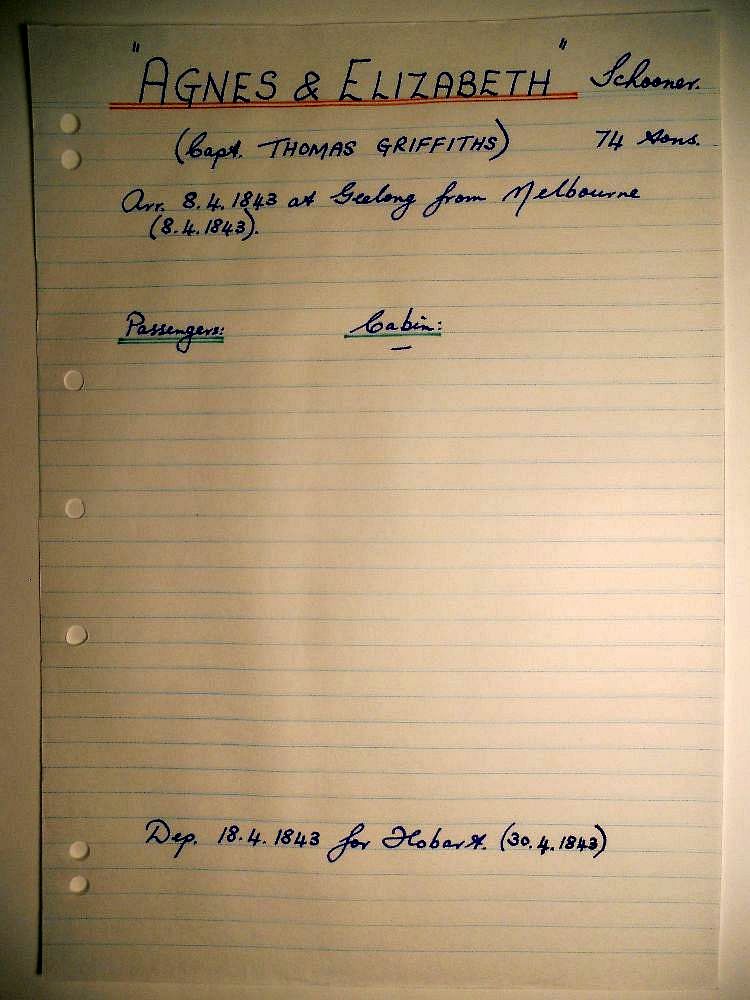 "AGNES & ELIZABETH" Schooner.
(Capt. THOMAS GRIFFITHS) 74 tons.
Arr. 8.4.1843 at Geelong from Melbourne
(8.4.1843).
Passengers: Cabin:
—
Dep. 18.4.1843 for Hobart. (30.4.1843)